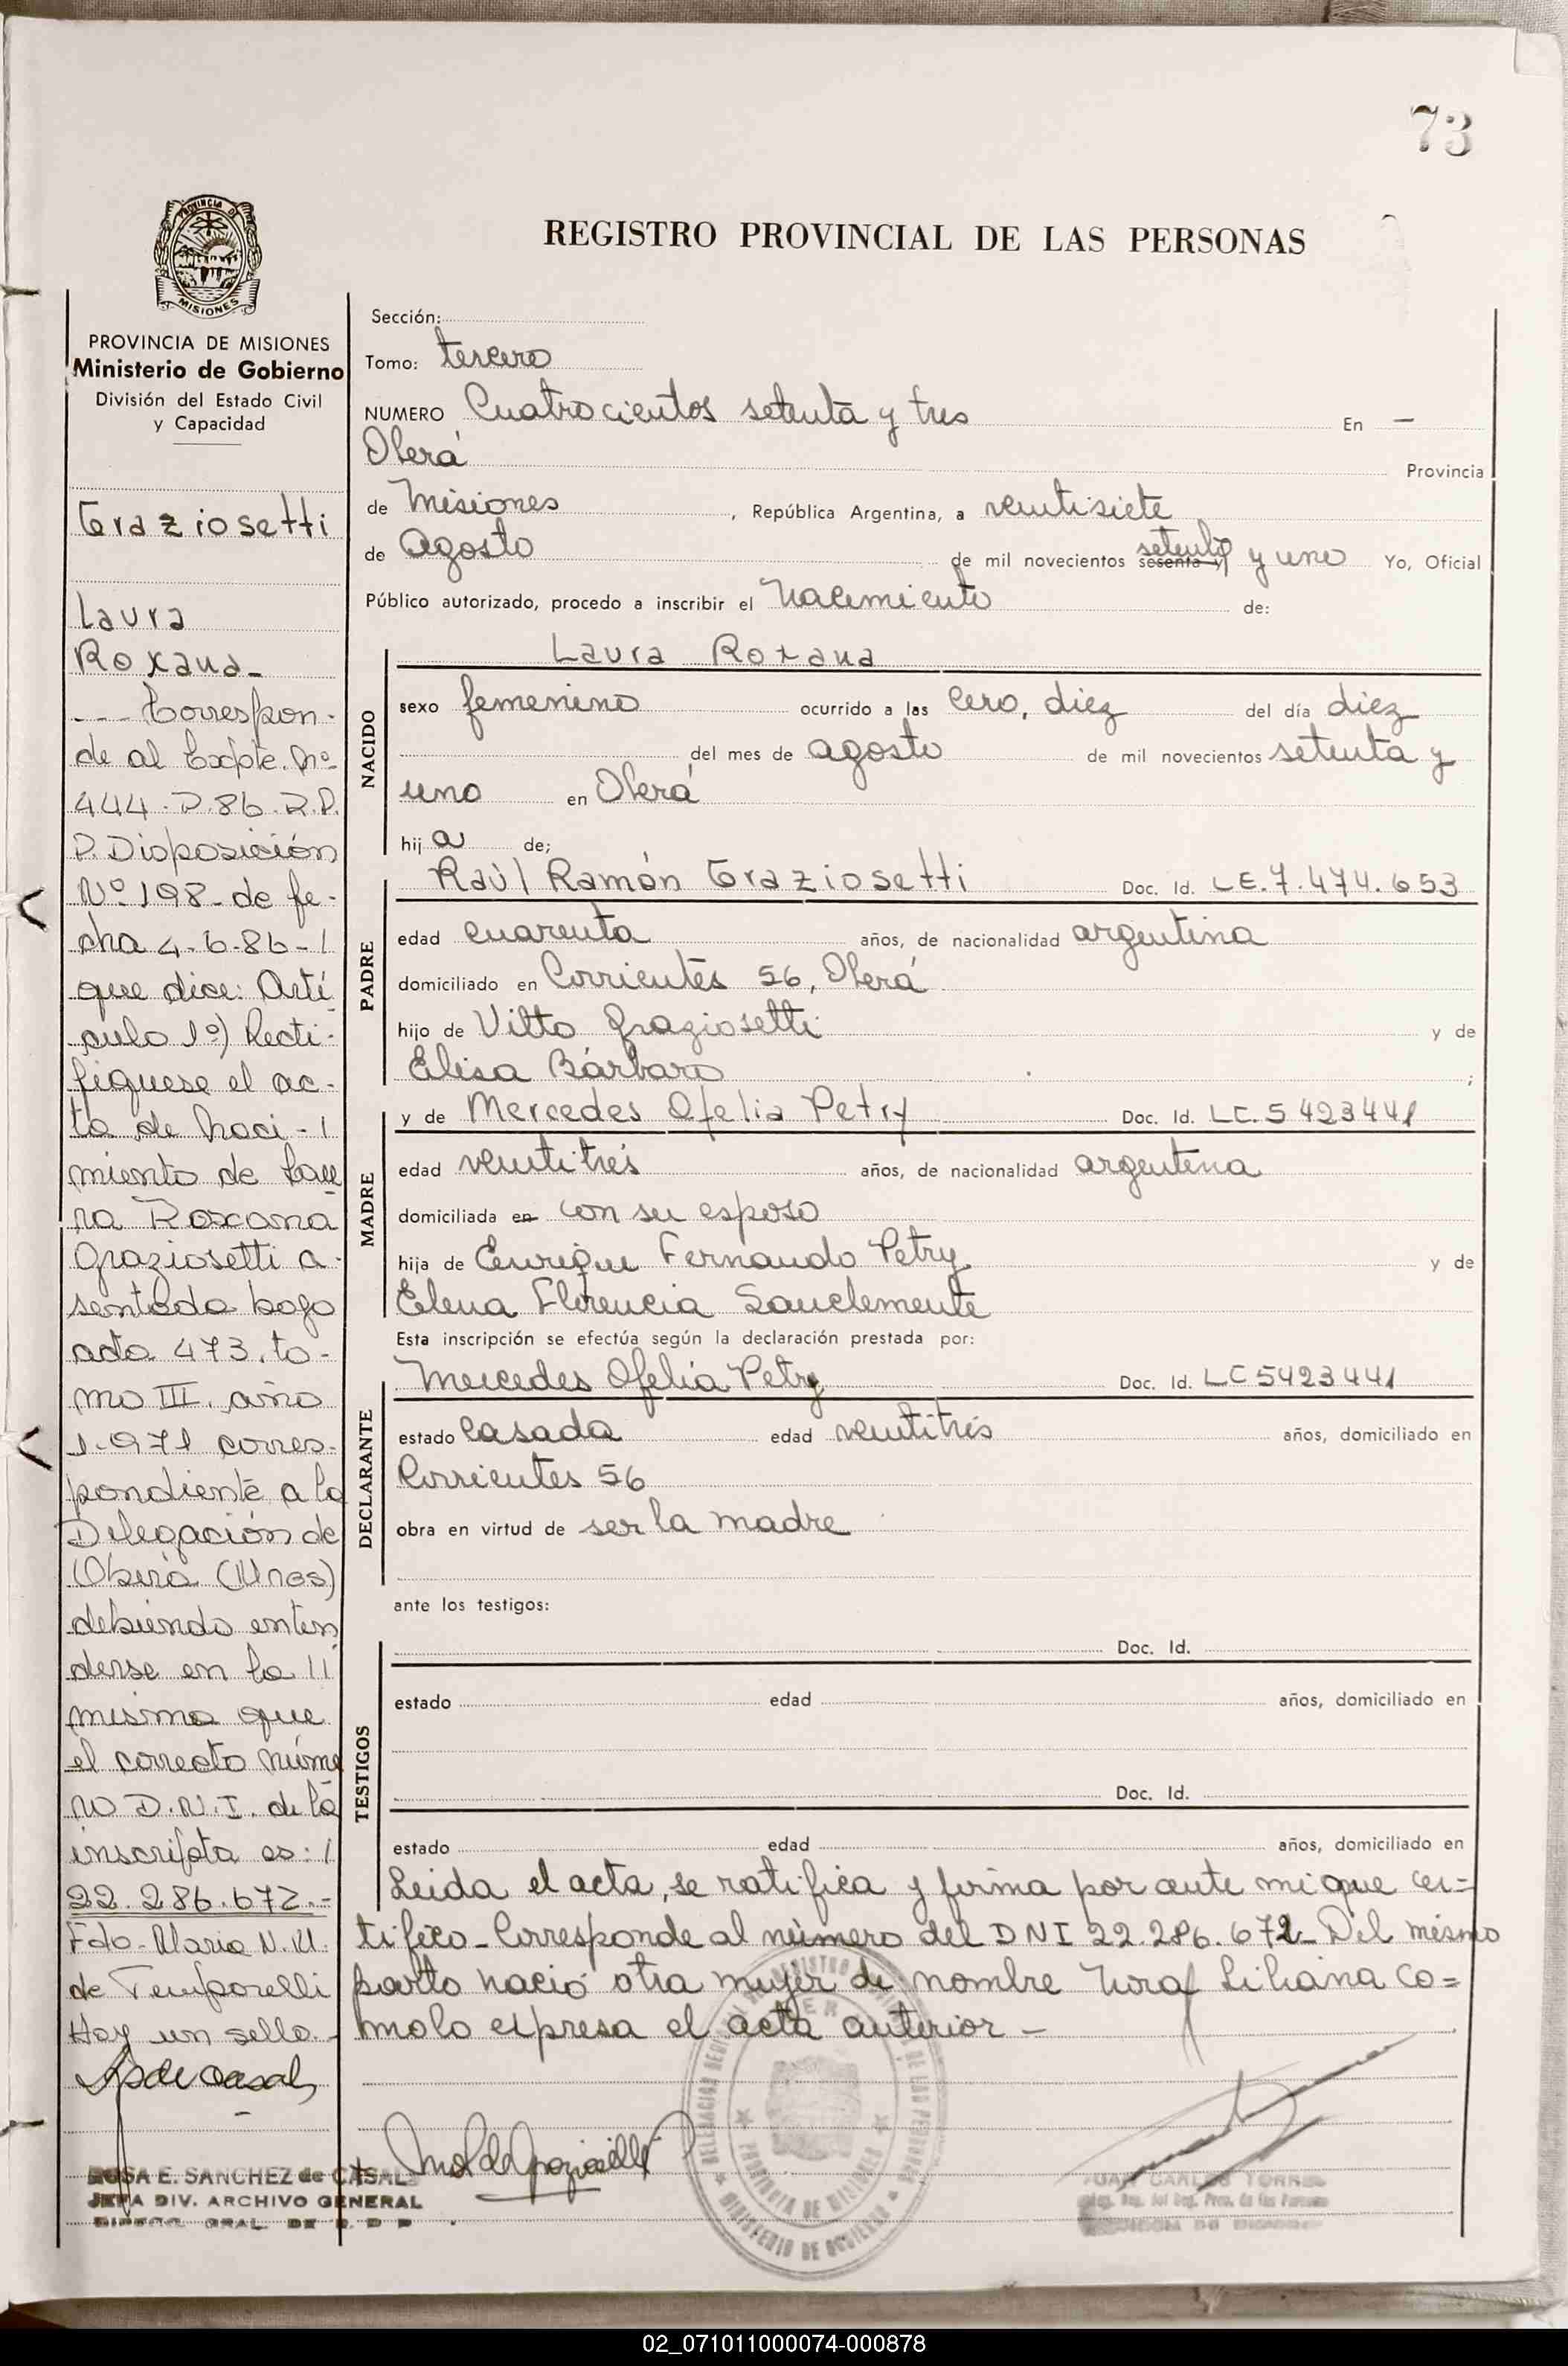 73
PROVINCIA DE
MISIONES
REGISTRO PROVINCIAL DE LAS PERSONAS
PROVINCIA DE MISIONES
Ministerio de Gobierno
División del Estado Civil
y Capacidad
Graziosetti
Laura
Roxana-
--- Correspon-
de al Expte. Nº
444-D-86-R.P.
P. Disposición
Nº 198- de fe-
cha 4-6-86-/
que dice: Artí
culo 1º) Recti-
fíquese el ac-
ta de Naci-/
miento de Lau
ra Roxana
Graziosetti a-
sentada bajo
acta 473, to-
mo III, año
1.971 corres-
pondiente a la
Delegación de
Oberá (Mnes)
debiendo enten
derse en la //
misma que
el correcto núme
ro D.N.I. de la
inscripta es: /
22.286.672.-
Fdo- María N. M.
de Temporelli
Hay un sello.-
ROSA E. SANCHEZ de CASAL
JEFA DIV. ARCHIVO GENERAL
DIRECC. GRAL. DE R. D P
Sección:
Tomo: tercero
NUMERO Cuatrocientos setenta y tres En —
Oberá Provincia
de Misiones, República Argentina, a veintisiete
de Agosto de mil novecientos sesenta y setenta y uno Yo, Oficial
Público autorizado, procedo a inscribir el Nacimiento de:
NACIDO
Laura Roxana
sexo femenino ocurrido a las cero, diez del día diez
del mes de agosto de mil novecientos setenta y
uno en Oberá
hija de;
PADRE
Raúl Ramón Graziosetti Doc. Id. LE.7.474.653
edad cuarenta años, de nacionalidad argentina
domiciliado en Corrientes 56, Oberá
hijo de Vitto Graziosetti y de
Elisa Bárbaro ;
MADRE
y de Mercedes Ofelia Petry Doc. Id. LC.5423441
edad veintitrés años, de nacionalidad argentina
domiciliada en con su esposo
hija de Enrique Fernando Petry y de
Elena Florencia Sanclemente
Esta inscripción se efectúa según la declaración prestada por:
DECLARANTE
Mercedes Ofelia Petry Doc. Id. LC5423441
estado casada edad veintitrés años, domiciliado en
Corrientes 56
obra en virtud de ser la madre
ante los testigos:
TESTIGOS
Doc. Id.
estado edad años, domiciliado en
Doc. Id.
estado edad años, domiciliado en
Leida el acta, se ratifica y firma por ante mi que cer=
tifico- Corresponde al número del DNI 22.286.672- Del mismo
parto nació otra mujer de nombre Nora Liliana co=
molo expresa el acta anterior-
PROVINCIA DE MISIONES
MINISTERIO DE GOBIERNO
JUAN CARLOS TORRES
02_071011000074-000878